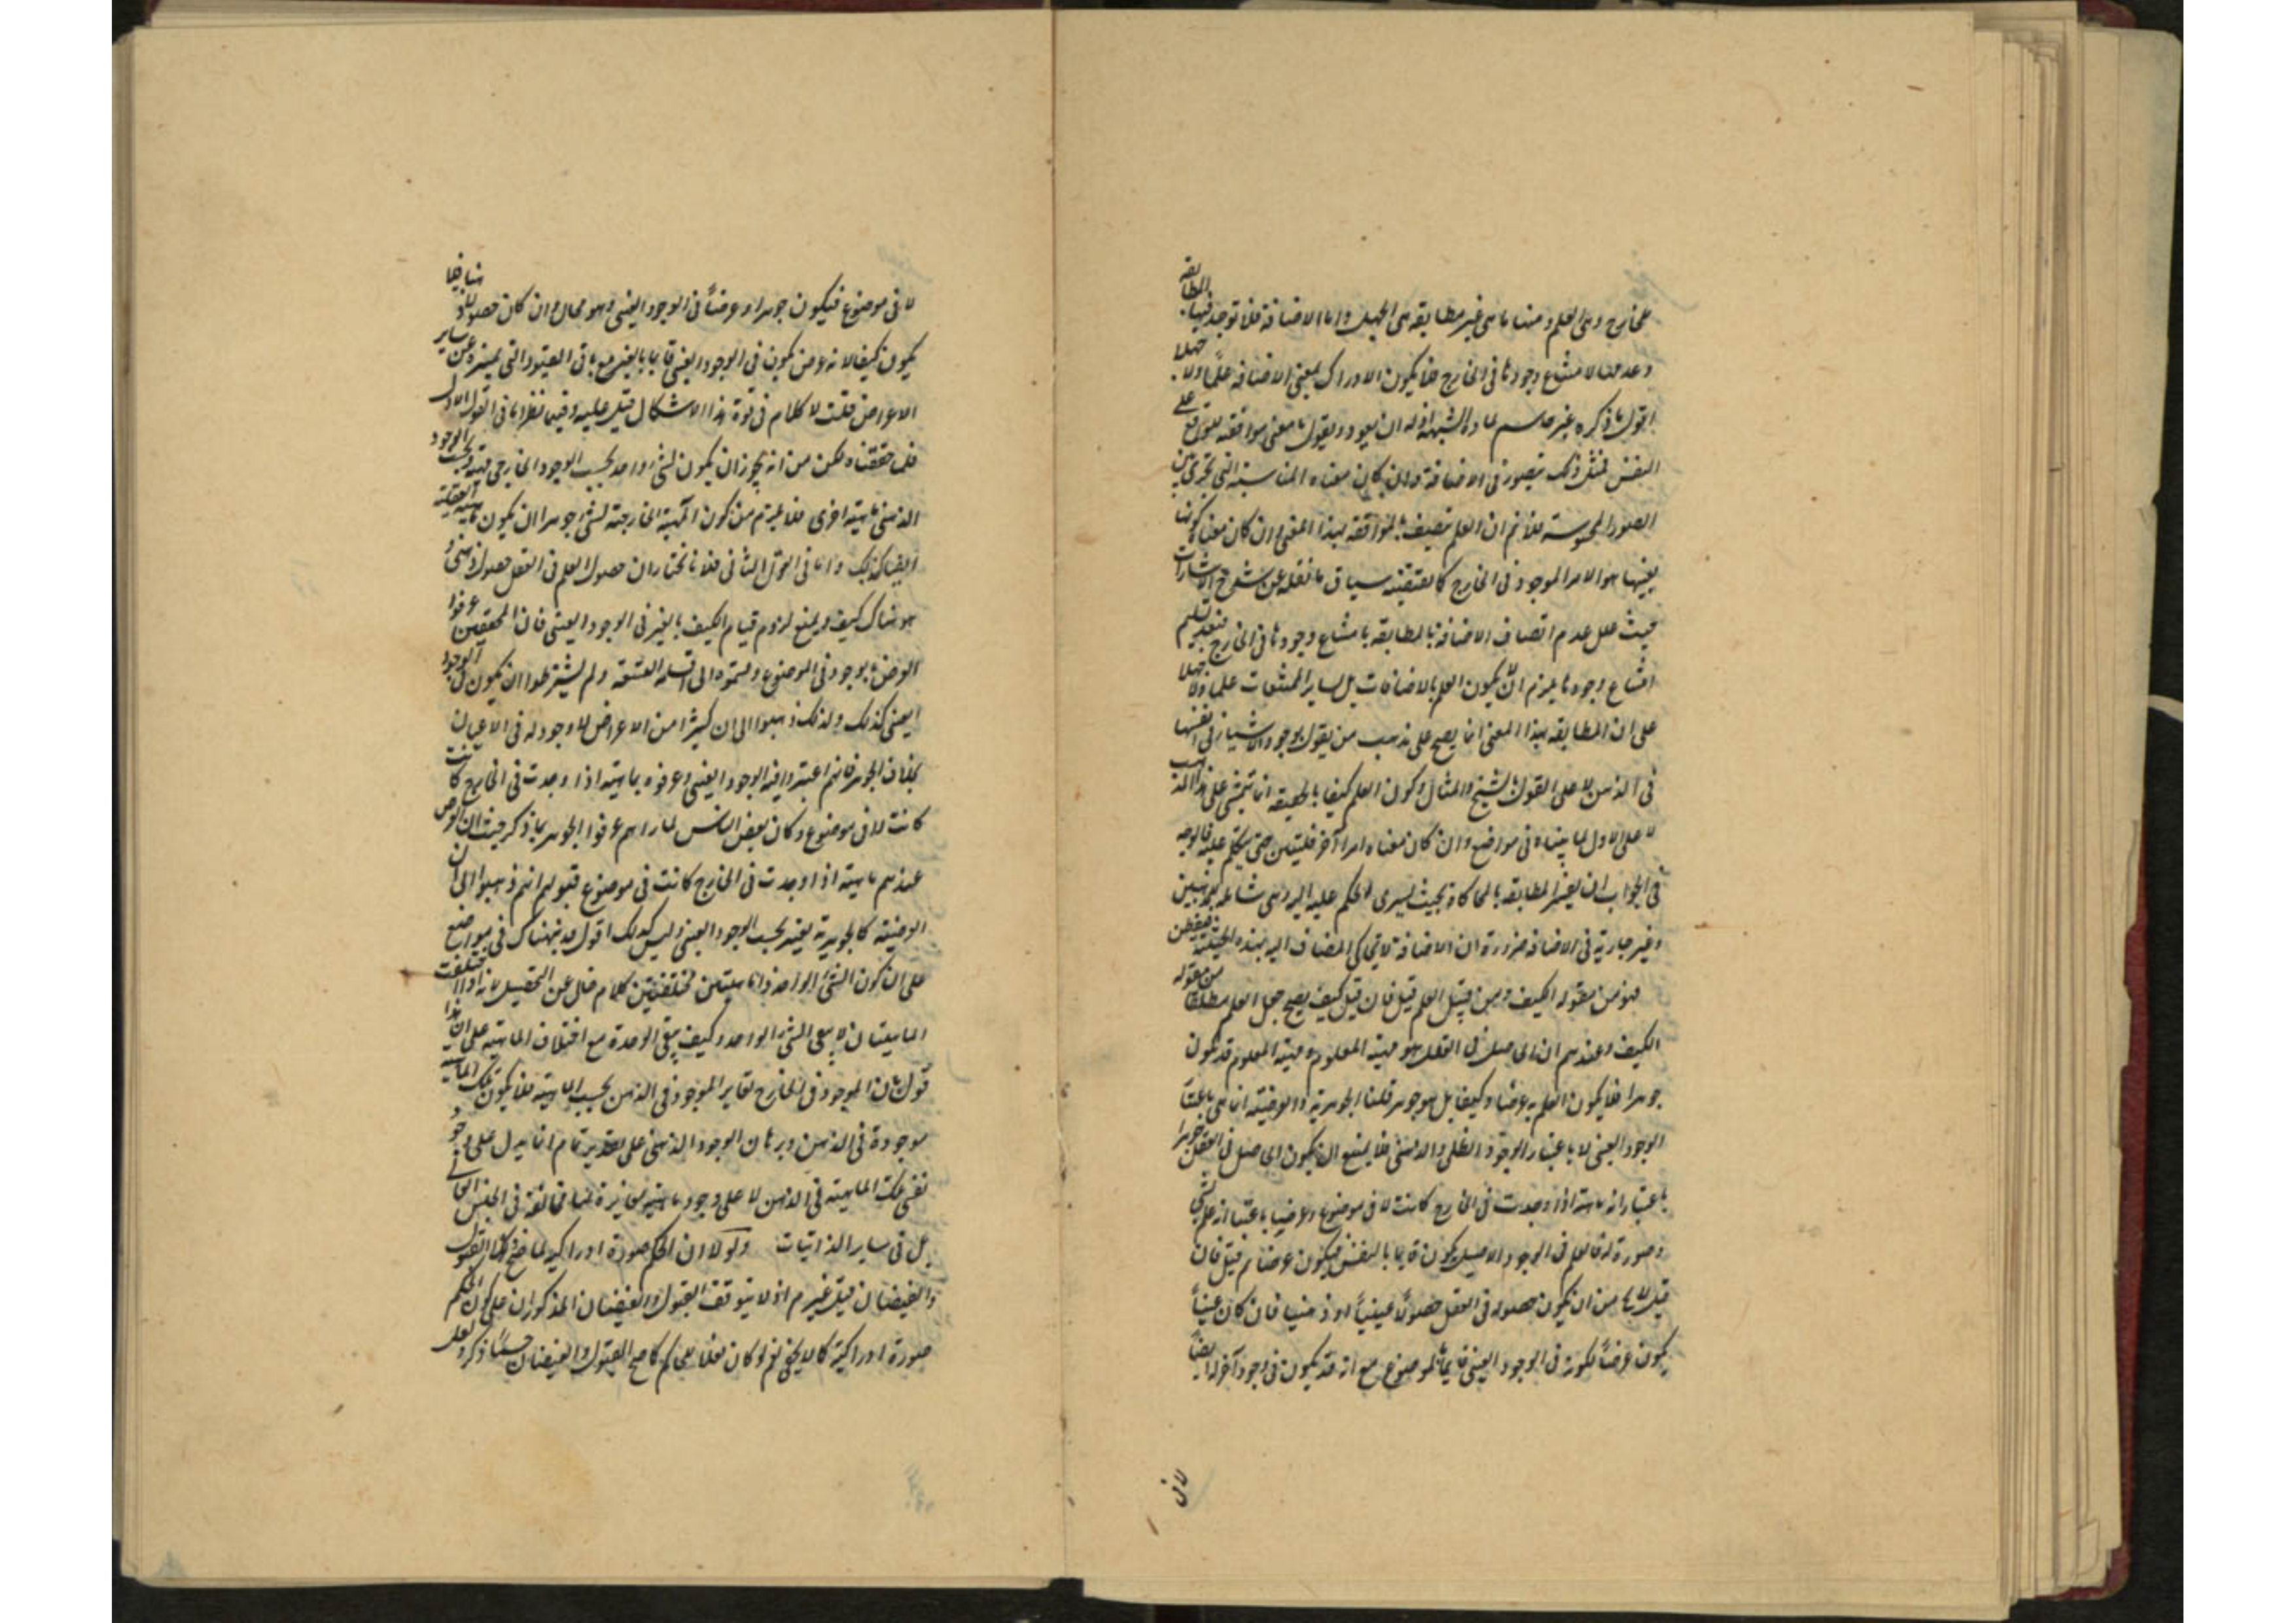 للخارج وهى العلم ومنها ما هى غير مطابقه هى الجهل واما الاضافة فلا توجد فيها المطابقه
وعدمها لامتناع وجودها فى الخارج فلا يكون الادراك بمعنى الاضافه علما ولا جهلا
اقول ما ذكره غير حاسم لمادة الشبهة اذ له ان يعود ويقول ما معنى موافقته للواقع على
النفس فمثل ذلك يتصور فى الاضافة وان كان معناه المناسبة التى تجرى بين
الصور المحسوسة فلا نم ان العلم تصيف بالموافقه بهذا المعنى وان كان معناه كونها
بعينها هو الامر الموجود فى الخارج كما يقتضيه سياق ما نقله عن شرح الاشارات
حيث علل عدم اتصاف الاضافة بالمطابقه بامتناع وجودها فى الخارج فبعد تسليم
امتناع وجودها يلزم ان لا يكون العلم بالاضافات بل بساير الممتنعات علما ولا جهلا
على ان المطابقه بهذا المعنى انما يصح على مذهب من يقول بوجود الاشياء انفسها
فى الذهن لا على القول بالشبح والمثال وكون العلم كيفا بالحقيقه انما يتمشى على هذا المذهب
لا على الاول لما بيناه فى مواضع وان كان معناه امرا آخر فليتبين حتى يتكلم عليه فالوجه
فى الجواب ان يفسر المطابقه بالمحاكاة بحيث يسرى الحكم عليه اليه وهى شاملة للمذهبين
وغير جارية فى الاضافه ضرورة ان الاضافة لا تحاكى المضاف اليه بهذه الحيثية
فهو من مقولة الكيف ومن قبيل العلم قيل فان قيل كيف يصح جعل العلم مطلقا من مقولة
الكيف وعندهم ان الحاصل فى العقل هو مهية المعلوم ومهية المعلوم قد تكون
جوهرا فلا يكون العلم به عرضا وكيفا بل هو جوهر قلنا الجوهرية والعرضية انما هى باعتبار
الوجود العينى لا باعتبار الوجود الظلى والذهنى فلا يمتنع ان يكون الحاصل فى العقل جوهرا
باعتبار انه ماهية اذا وجدت فى الخارج كانت لا فى موضوع وعرضيا باعتبار انه علم
وصورة له فالعلم فى الوجود الاصيل يكون قايما بالنفس فيكون عرضا ثم قيل فان
قيل لا يخ من ان يكون حصوله فى العقل حصولا عينيا او ذهنيا فان كان عينيا
يكون عرضا لكونه فى الوجود العينى قايما بالموضوع مع انه قد يكون فى وجود آخر له ايضا
لا فى
لا فى موضوع فيكون جوهرا وعرضا فى الوجود العينى وهو محال وان كان حصولا ذهنيا
يكون كيفا لانه عرض يكون فى الوجود العينى قايما بالغير مع باقى القيود التى تميزه عن ساير
الاعراض قلت لا كلام فى قوة هذا الاشكال قيل عليه وفيه نظر اما فى القول الاول
فلما حققناه من انه يجوز ان يكون لشئ واحد بحسب الوجود الخارجى مهية وبحسب الوجود
الذهنى ماهية اخرى فلا يلزم من كون المهية الخارجية لشئ جوهرا ان يكون ماهيته العقلية
ايضا كذلك واما فى القول الثانى فلانا نختار ان حصول العلم فى العقل حصول ذهنى و
هو هناك كيف ويمنع لزوم قيام الكيف بالغير فى الوجود العينى فان المحققين عرفوا
العرض بالموجود فى الموضوع وقسموه الى اقسامه التسعة ولم يشترطوا ان يكون فى الوجود
العينى كذلك ولذلك ذهبوا الى ان كثيرا من الاعراض لا وجود له فى الاعيان
بخلاف الجوهر فانهم اعتبروا فيه الوجود العينى وعرفوه بماهية اذا وجدت فى الخارج كانت
كانت لا فى موضوع وكان بعض الناس لما راهم عرفوا الجوهر بما ذكر حيث ان العرض
عندهم ماهية اذا وجدت فى الخارج كانت فى موضوع فتوهم انهم ذهبوا الى ان
العرضية كالجوهرية يعتبر بحسب الوجود العينى وليس كذلك اقول قد نبهناك فى مواضع
على ان كون الشئ الواحد ذا ماهيتين مختلفتين كلام خال عن التحصيل فانه اذا اختلفت
الماهيتان لا يبقى الشئ الواحد وكيف يبقى الوحدة مع اختلاف الماهية على ان هذا
قول بان الموجود فى الخارج تغاير الموجود فى الذهن بحسب الماهية فلا يكون تلك الماهية
موجودة فى الذهن وبرهان الوجود الذهنى على تقدير تمام انما يدل على وجود
نفس تلك الماهية فى الذهن لا على وجود ماهية مغايرة لها مخالفة فى الجنس العالى
بل فى ساير الذاتيات ولولا ان الحكم صورة ادراكية لما صح القول
والفيضان قيل غير م اذ لا يتوقف القبول والفيضان المذكوران على كون الحكم
صورة ادراكية كما لا يخفى نعم لو كان فعلا للحاكم كما صح القبول والفيضان